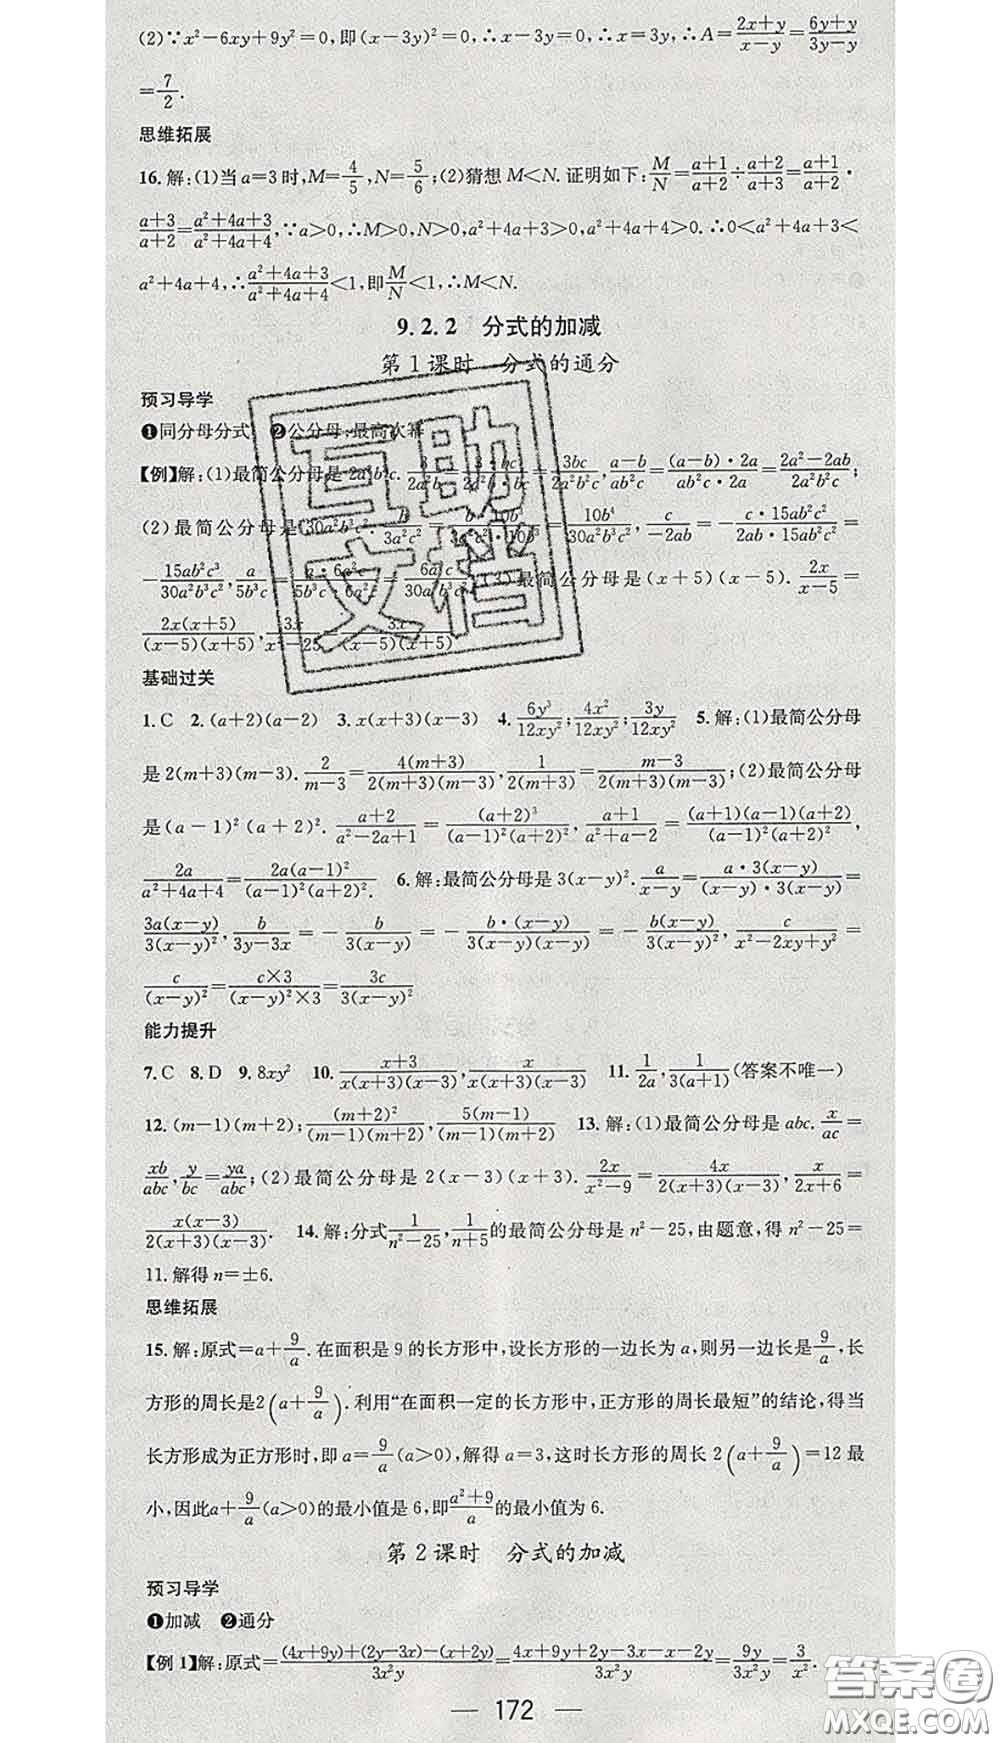 (2)∵x²-6xy+9y²=0,即(x-3y)²=0,∴x-3y=0,∴x=3y,∴A=(2x+y)/(x-y)=(6y+y)/(3y-y)
=7/2.
思维拓展
16.解:(1)当a=3时,M=4/5,N=5/6;(2)猜想M<N.证明如下:M/N=(a+1)/(a+2)÷(a+2)/(a+3)=(a+1)/(a+2)·
(a+3)/(a+2)=(a²+4a+3)/(a²+4a+4),∵a>0,∴M>0,N>0,a²+4a+3>0,a²+4a+4>0.∴0<a²+4a+3<
a²+4a+4,∴(a²+4a+3)/(a²+4a+4)<1,即M/N<1,∴M<N.
9.2.2 分式的加减
第1课时 分式的通分
预习导学
❶同分母分式 ❷公分母;最高次幂
【例】解:(1)最简公分母是2a²b²c. =3bc/(2a²b²c),(a-b)/(ab²c)=((a-b)·2a)/(ab²c·2a)=(2a²-2ab)/(2a²b²c);
(2)最简公分母是30a²b³c². =10b⁴/(30a²b³c²),c/(-2ab)=-(c·15ab²c²)/(2ab·15ab²c²)=
-15ab²c³/(30a²b³c²),a/(5b³c)=(a·6a²c)/(5b³c·6a²c)=6a³c/(30a²b³c²);(3)最简公分母是(x+5)(x-5).2x/(x-5)=
2x(x+5)/((x-5)(x+5)),3x/(x²-25)=3x/((x-5)(x+5))
基础过关
1.C 2.(a+2)(a-2) 3.x(x+3)(x-3) 4.6y³/(12xy²);4x²/(12xy²);3y/(12xy²) 5.解:(1)最简公分母
是2(m+3)(m-3).2/(m-3)=4(m+3)/(2(m+3)(m-3)),1/(2(m+3))=(m-3)/(2(m+3)(m-3));(2)最简公分母
是(a-1)²(a+2)².(a+2)/(a²-2a+1)=(a+2)³/((a-1)²(a+2)²),(a+1)/(a²+a-2)=(a+1)(a-1)(a+2)/((a-1)²(a+2)²),
2a/(a²+4a+4)=2a(a-1)²/((a-1)²(a+2)²). 6.解:最简公分母是3(x-y)².a/(x-y)=(a·3(x-y))/((x-y)·3(x-y))=
3a(x-y)/(3(x-y)²),b/(3y-3x)=-b/(3(x-y))=-(b·(x-y))/(3(x-y)(x-y))=-b(x-y)/(3(x-y)²),c/(x²-2xy+y²)=
c/(x-y)²=(c×3)/((x-y)²×3)=3c/(3(x-y)²)
能力提升
7.C 8.D 9.8xy² 10.(x+3)/(x(x+3)(x-3)),x/(x(x+3)(x-3)) 11.1/(2a),1/(3(a+1))(答案不唯一)
12.(m-1)(m+2);(m+2)²/((m-1)(m+2)),5(m-1)/((m-1)(m+2)) 13.解:(1)最简公分母是abc.x/(ac)=
xb/(abc),y/(bc)=ya/(abc);(2)最简公分母是2(x-3)(x+3).2x/(x²-9)=4x/(2(x+3)(x-3)),x/(2x+6)=
x(x-3)/(2(x+3)(x-3)). 14.解:分式1/(n²-25),1/(n+5)的最简公分母是n²-25,由题意,得n²-25=
11.解得n=±6.
思维拓展
15.解:原式=a+9/a.在面积是9的长方形中,设长方形的一边长为a,则另一边长是9/a,长
方形的周长是2(a+9/a).利用“在面积一定的长方形中,正方形的周长最短”的结论,得当
长方形成为正方形时,即a=9/a(a>0),解得a=3,这时长方形的周长2(a+9/a)=12最
小,因此a+9/a(a>0)的最小值是6,即(a²+9)/a的最小值为6.
第2课时 分式的加减
预习导学
❶加减 ❷通分
【例1】解:原式=((4x+9y)+(2y-3x)-(x+2y))/(3x²y)=(4x+9y+2y-3x-x-2y)/(3x²y)=9y/(3x²y)=3/x².
— 172 —
互助
文档
答案圈
MXQE.COM